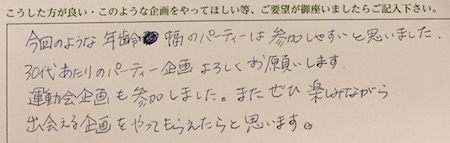 こうした方が良い・このような企画をやってほしい等、ご要望が御座いましたらご記入下さい。
今回のような年齢幅のパーティーは参加しやすいと思いました.
30代あたりのパーティー企画よろしくお願いします.
運動会企画も参加しました。またぜひ楽しみながら
出会える企画をやってもらえたらと思います。